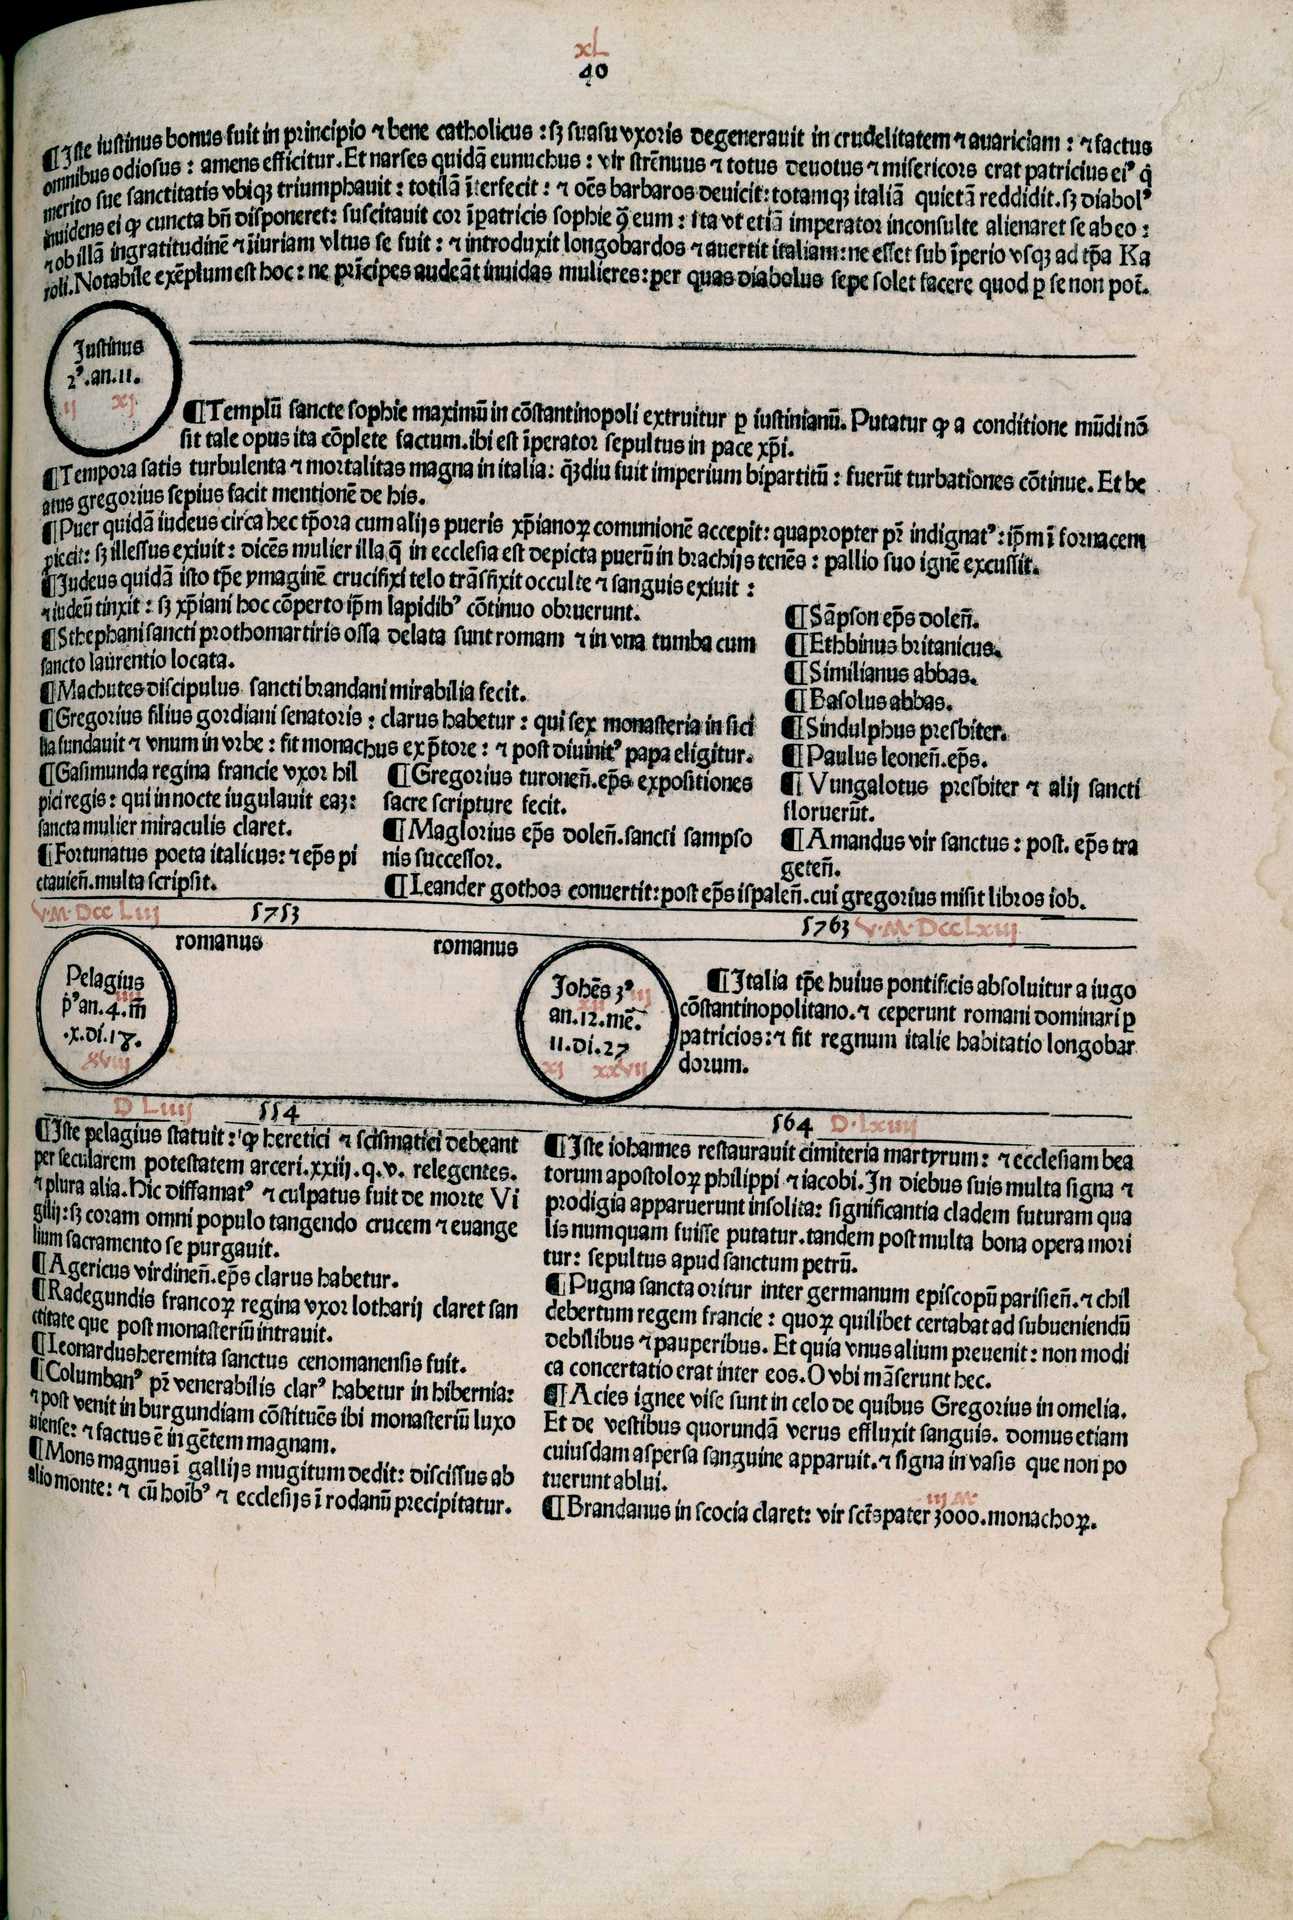 xL
40
¶Iste iustinus bonus fuit in principio ⁊ bene catholicus : sꝫ suasu vxoris degenerauit in crudelitatem ⁊ auariciam : ⁊ factus
omnibus odiosus : amens efficitur. Et narses quidā eunuchus : vir strēnuus ⁊ totus deuotus ⁊ misericors erat patricius eiꝰ q̄
merito sue sanctitatis vbiqꝫ triumphauit : totilā īterfecit : ⁊ oēs barbaros deuicit: totamqꝫ italiā quietā reddidit. sꝫ diabolꝰ
inuidens ei ꝙ cuncta bn̄ disponeret: suscitauit cor īpatricis sophie ꝯ̄ eum : ita vt etiā imperator inconsulte alienaret se ab eo :
⁊ ob illā ingratitudinē ⁊ īiuriam vltus se fuit : ⁊ introduxit longobardos ⁊ auertit italiam: ne esset sub īperio vsqꝫ ad tp̄a Ka
roli. Notabile exēplum est hoc : ne prīcipes audeāt inuidas mulieres : per quas diabolus sepe solet facere quod ꝑ se non pot̄.
Iustinus
2ꝰ.an.11.
ij xj
¶Templū sancte sophie maximū in cōstantinopoli extruitur ꝑ iustinianū. Putatur ꝙ a conditione mūdi nō
sit tale opus ita cōplete factum. ibi est īperator sepultus in pace xp̄i.
¶Tempora satis turbulenta ⁊ mortalitas magna in italia: qꝫ̄diu fuit imperium bipartitū : fuerūt turbationes cōtinue. Et be
atus gregorius sepius facit mentionē de his.
¶Puer quidā iudeus circa hec tp̄ora cum alijs pueris xp̄ianoꝝ comunionē accepit: quapropter pr̄ indignatꝰ : ip̄m ī fornacem
piecit: sꝫ illesus exiuit : dicēs mulier illa q̄ in ecclesia est depicta puerū in brachijs tenēs : pallio suo ignē excussit.
¶Iudeus quidā isto tp̄e ymaginē crucifixi telo trāsfixit occulte ⁊ sanguis exiuit :
⁊ iudeū tinxit : sꝫ xp̄iani hoc cōperto ip̄m lapidibꝰ cōtinuo obruerunt.
¶Sthephani sancti prothomartiris ossa delata sunt romam ⁊ in vna tumba cum
sancto laurentio locata.
¶Machutes discipulus sancti brandani mirabilia fecit.
¶Gregorius filius gordiani senatoris : clarus habetur : qui sex monasteria in sici
lia fundauit ⁊ vnum in vrbe : fit monachus ex p̄tore : ⁊ post diuinitꝰ papa eligitur.
¶Gasimunda regina francie vxor hil
pici regis : qui in nocte iugulauit eaꝫ:
sancta mulier miraculis claret.
¶Fortunatus poeta italicus: ⁊ ep̄s pi
ctauien̄. multa scripsit.
¶Gregorius turonen̄. ep̄s expositiones
sacre scripture fecit.
¶Maglorius ep̄s dolen̄. sancti sampso
nis successor.
¶Leander gothos conuertit: post ep̄s ispalen̄. cui gregorius misit libros iob.
¶Sāpson ep̄s dolen̄.
¶Ethbinus britanicus.
¶Similianus abbas.
¶Basolus abbas.
¶Sindulphus presbiter.
¶Paulus leonen̄. ep̄s.
¶Vungalotus presbiter ⁊ alij sancti
floruerūt.
¶Amandus vir sanctus : post. ep̄s tra
geten̄.
V.M.DCC Liij 5753
5763 V.M.DCCLxiij
romanus romanus
Pelagius
pꝰ an. 4. m̄
iiij
.x. di. 18.
xviij
Johēs 3ꝰ
iij
xij
an. 12. mē.
11. di. 27
xj xxvij
¶Italia tp̄e huius pontificis absoluitur a iugo
cōstantinopolitano. ⁊ ceperunt romani dominari ꝑ
patricios : ⁊ fit regnum italie habitatio longobar
dorum.
D Liiij 554
564 D.Lxiiij
¶Iste pelagius statuit : ꝙ heretici ⁊ scismatici debeant
per secularem potestatem arceri. xxiij. q. v. relegentes.
⁊ plura alia. Hic diffamatꝰ ⁊ culpatus fuit de morte Vi
gilij: sꝫ coram omni populo tangendo crucem ⁊ euange
lium sacramento se purgauit.
¶Agericus virdinen̄. ep̄s clarus habetur.
¶Radegundis francoꝝ regina vxor lotharij claret san
ctitate que post monasteriū intrauit.
¶Leonardus heremita sanctus cenomanensis fuit.
¶Columbanꝰ pr̄ venerabilis clarꝰ habetur in hibernia:
⁊ post venit in burgundiam cōstituēs ibi monasteriū luxo
uiense: ⁊ factus ē in gētem magnam.
¶Mons magnus ī gallijs mugitum dedit: discissus ab
alio monte: ⁊ cū hoībꝰ ⁊ ecclesijs ī rodanū precipitatur.
¶Iste iohannes restaurauit cimiteria martyrum : ⁊ ecclesiam bea
torum apostoloꝝ philippi ⁊ iacobi. In diebus suis multa signa ⁊
prodigia apparuerunt insolita: significantia cladem futuram qua
lis numquam fuisse putatur. tandem post multa bona opera mori
tur: sepultus apud sanctum petrū.
¶Pugna sancta oritur inter germanum episcopū parisien̄. ⁊ chil
debertum regem francie : quoꝝ quilibet certabat ad subueniendū
debilibus ⁊ pauperibus. Et quia vnus alium preuenit : non modi
ca concertatio erat inter eos. O vbi māserunt hec.
¶Acies ignee vise sunt in celo de quibus Gregorius in omelia.
Et de vestibus quorundā verus effluxit sanguis. domus etiam
cuiusdam aspersa sanguine apparuit. ⁊ signa in vasis que non po
tuerunt ablui.
iij M
¶Brandanus in scocia claret: vir sct̄s pater 3000. monachoꝝ.